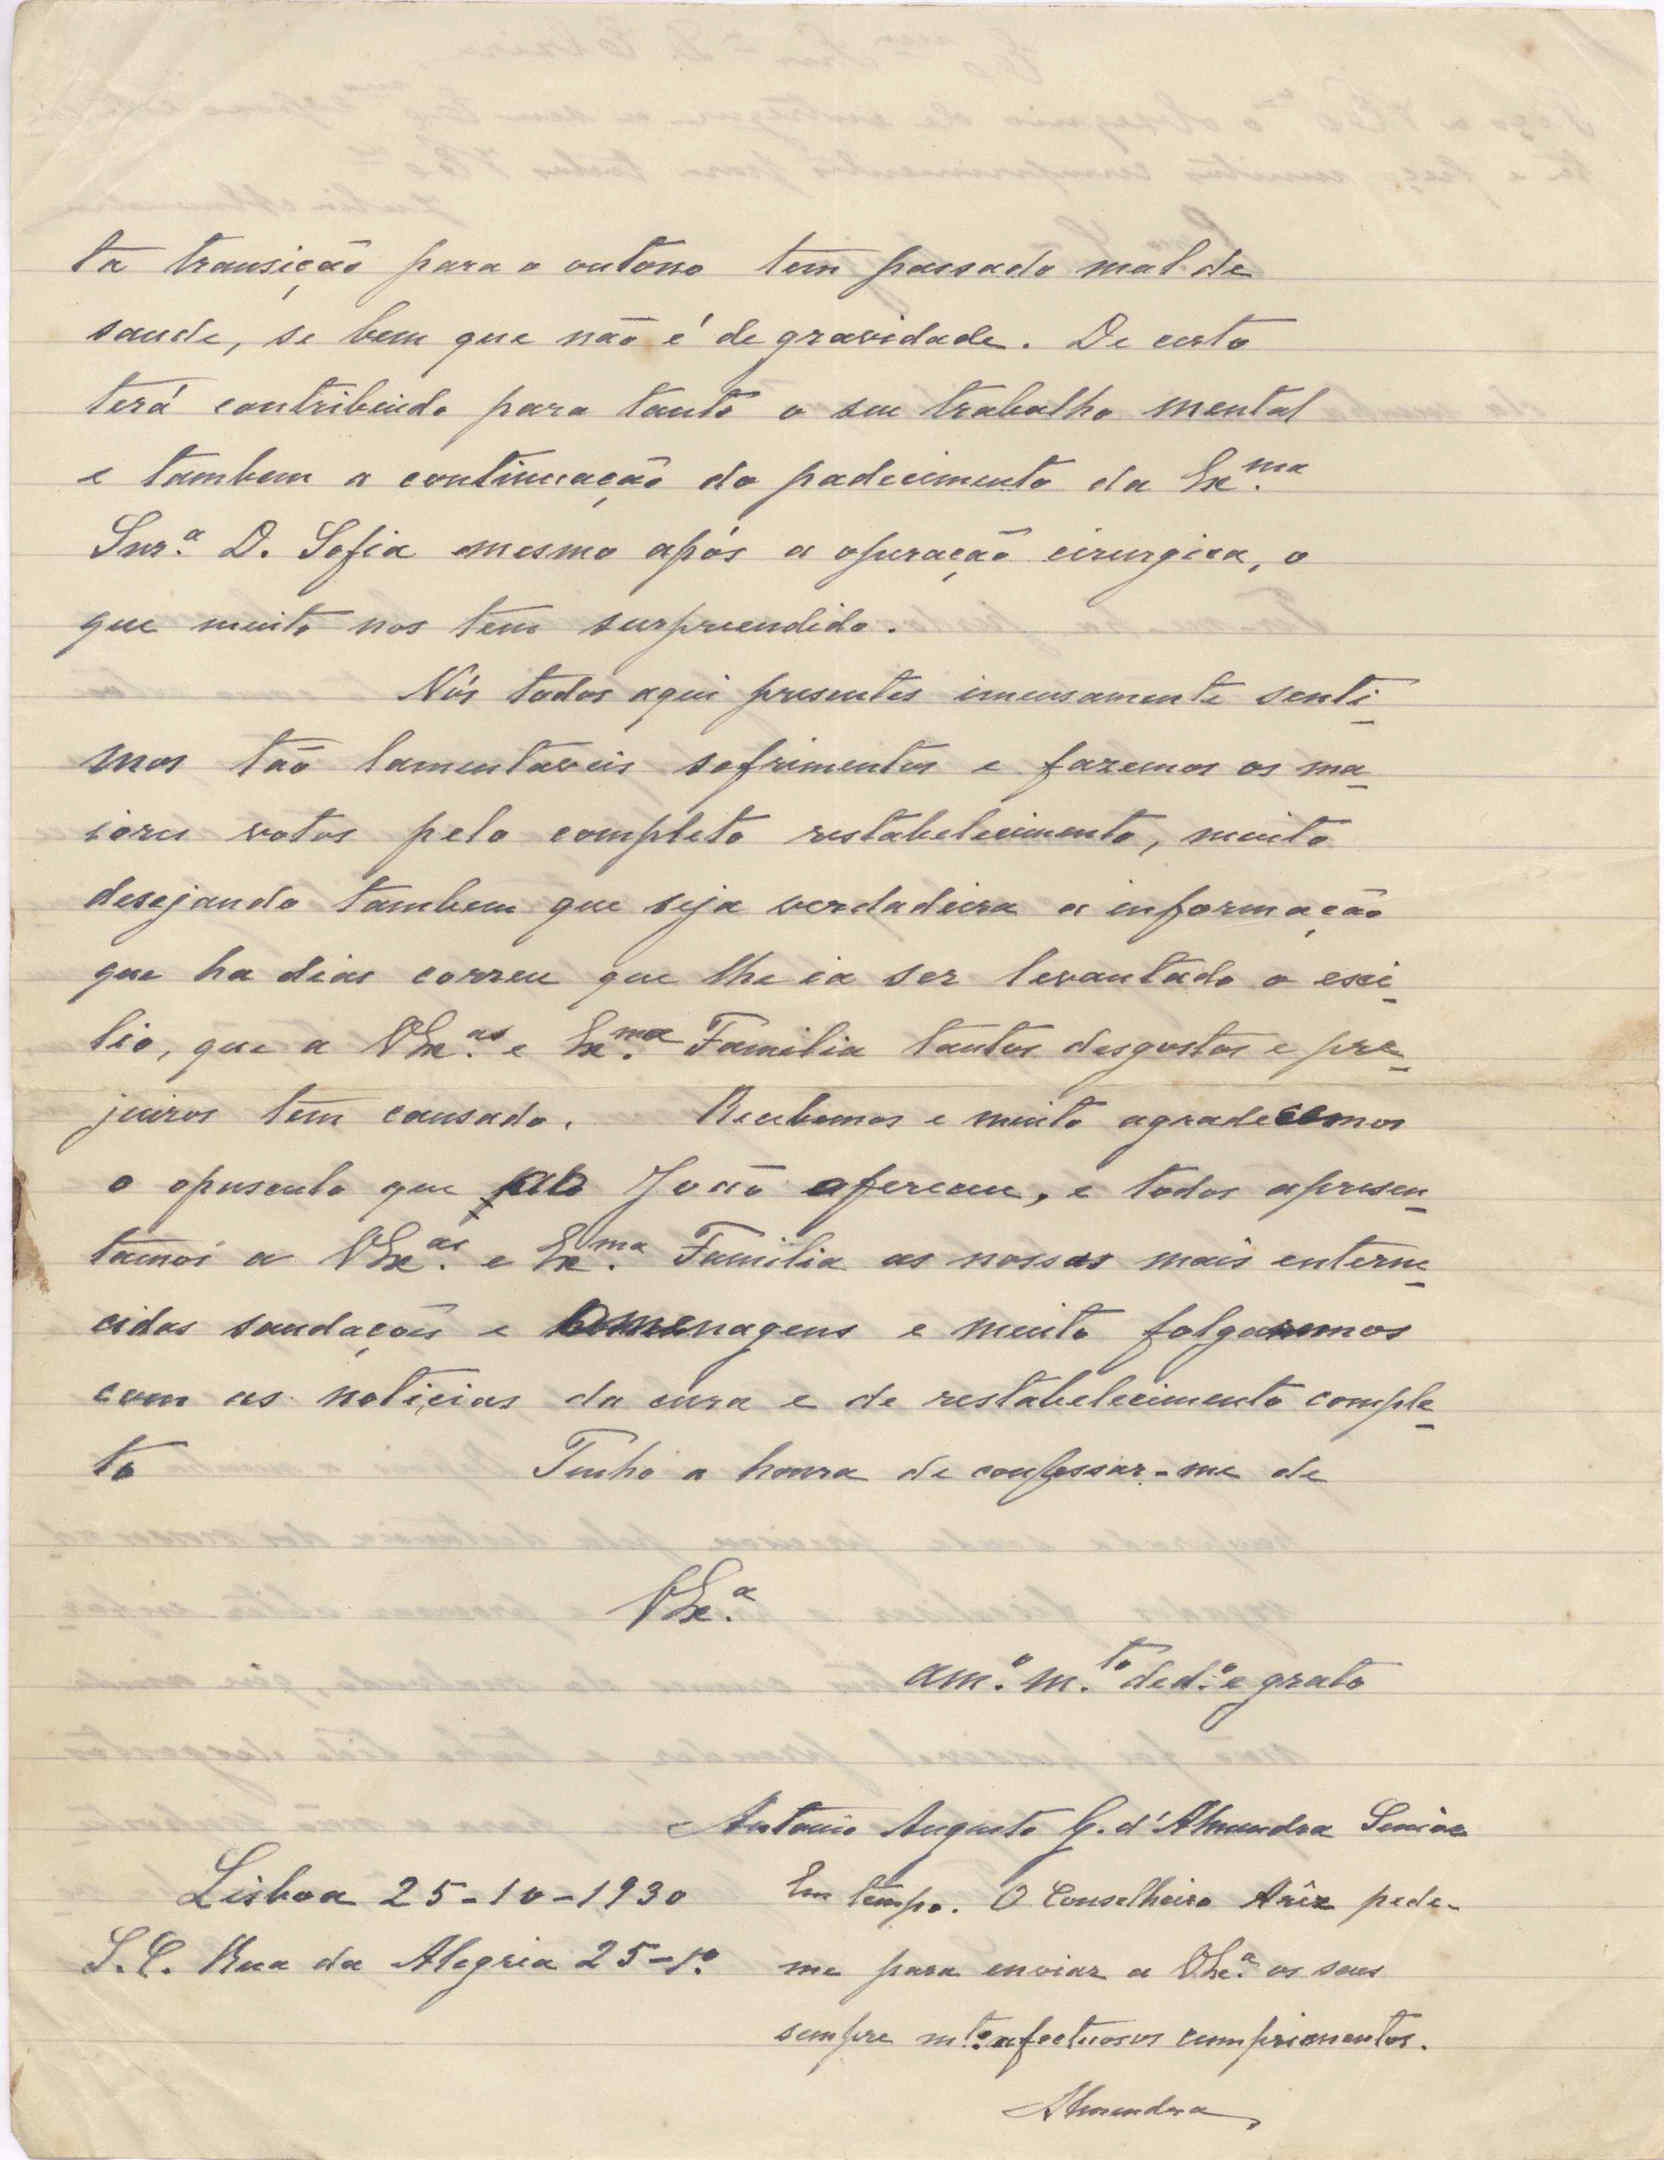 ta transição para o outono tem passado mal de
saude, se bem que não é de gravidade. De certo
terá contribuido para tanto o seu trabalho mental
e tambem a continuação do padecimento da Ex.ma
Snr.a D. Sofia mesmo após a operação cirurgica, o
que muito nos tem surpreendido.
Nós todos aqui presentes imensamente senti-
mos tão lamentaveis sofrimentos e fazemos os ma-
iores votos pelo completo restabelecimento, muito
desejando tambem que seja verdadeira a informação
que ha dias correu que lhe ia ser levantado o exi-
lio, que a VEx.as e Ex.ma Familia tantos desgostos e pre-
juizos tem causado. Recebemos e muito agradecemos
o opusculo que ao João ofereceu, e todos apresen-
tamos a VEx.as e Ex.ma Familia as nossas mais enterne-
cidas saudações e homenagens e muito folgaremos
com as noticias da cura e de restabelecimento comple-
to Tenho a honra de confessar-me de
VEx.a
am.o m.to ded.o e grato
Antonio Augusto G. d'Almendra Senior
Lisboa 25-10-1930
S.C. Rua da Alegria 25-1.o
Em tempo. O Conselheiro pede-
me para enviar a VEx.a os seus
sempre m.to afectuosos cumprimentos.
Almendra